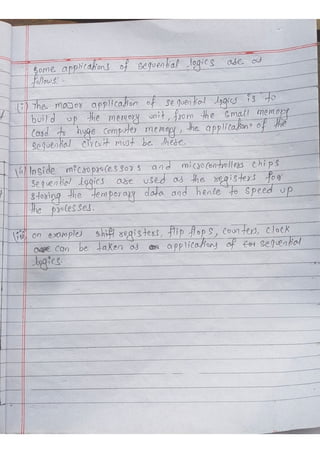 Some applications of sequential logics are as
follows.
(i) The major application of sequential logics is to
build up the memory unit, from the small memory
card to huge computer memory, the application of the
sequential circuit must be there.
(ii) Inside microprocessors and microcontrollers chips
sequential logics are used as the registers for
storing the temporary data and hence to speed up
the processes.
(iii) on examples shift registers, flip flops, counters, clock
can be taken as applications of sequential
logics.